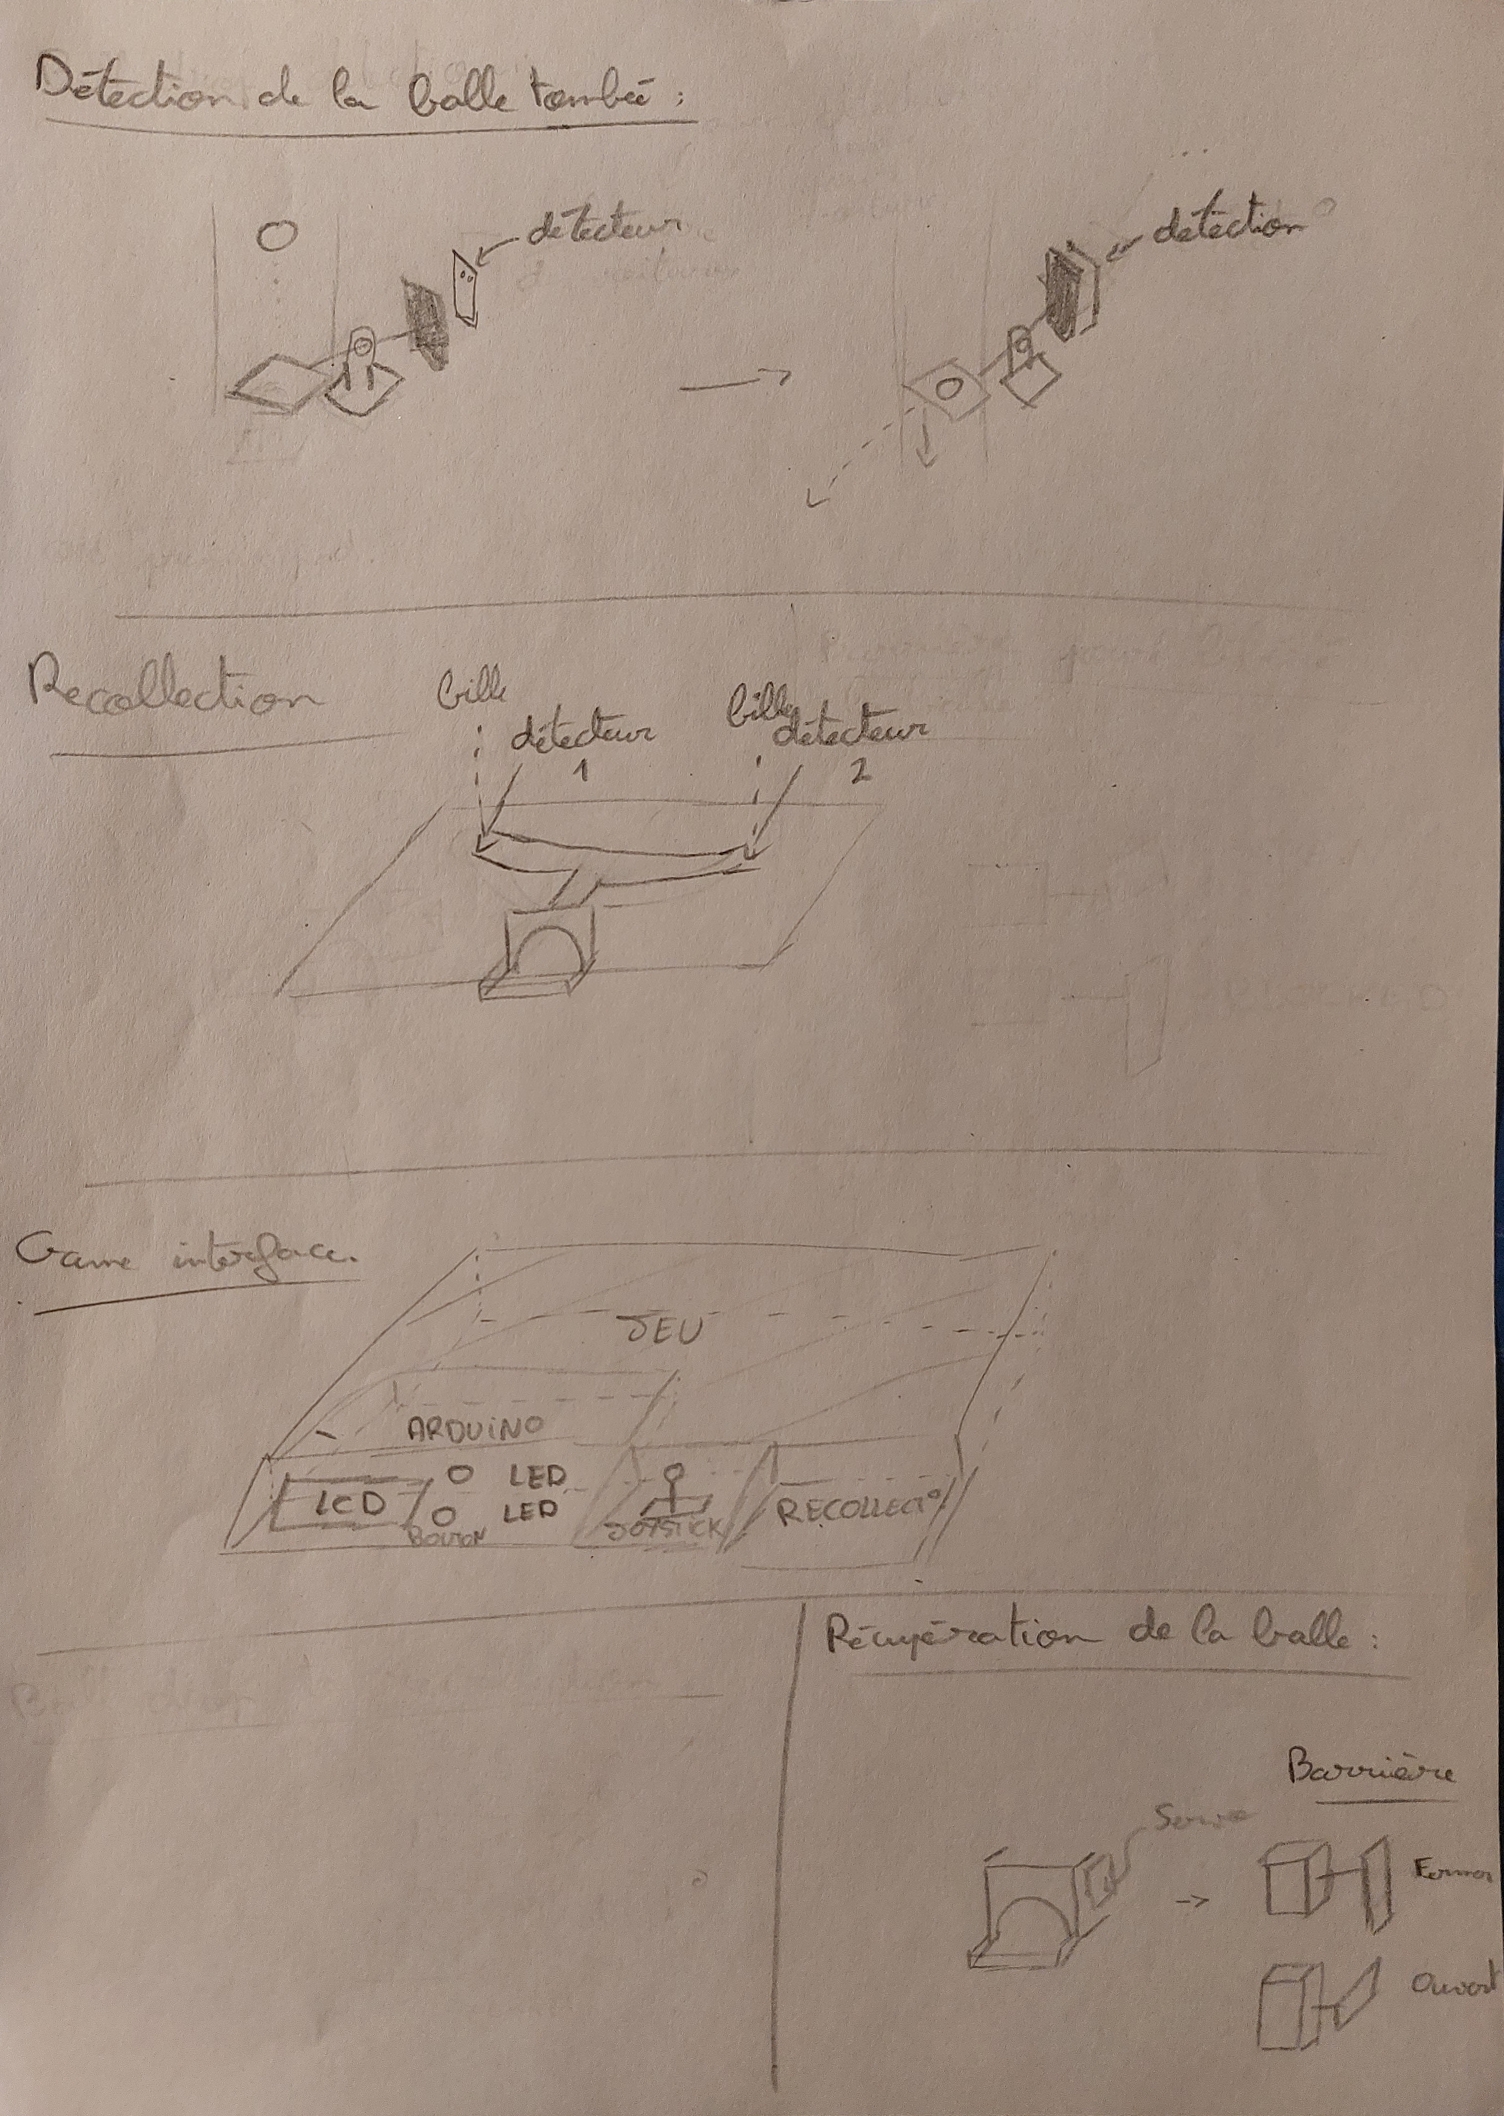 Détection de la balle tombée :
détecteur
détection
Recollection
bille
bille
détecteur
1
détecteur
2
Game interface.
JEU
ARDUINO
LCD
LED
LED
BOUTON
JOYSTICK
RECOLLECT°
Récupération de la balle :
Barrière
Servo
Fermer
Ouvert